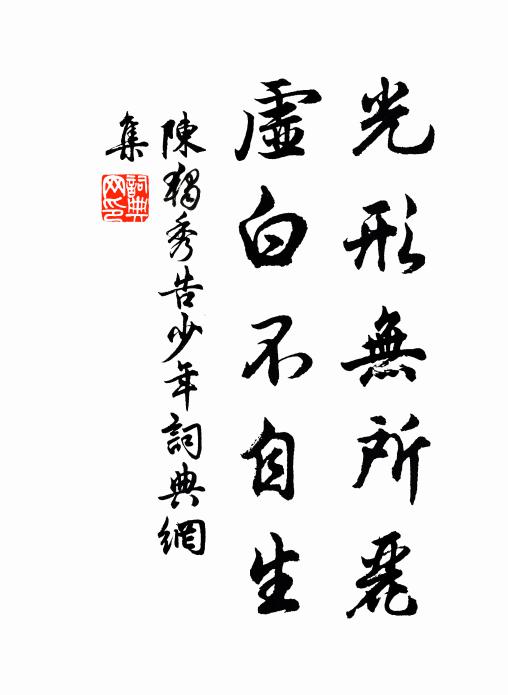 光形無所麗
虛白不自生
陳獨秀告少年詞典網
集
詞典
网印